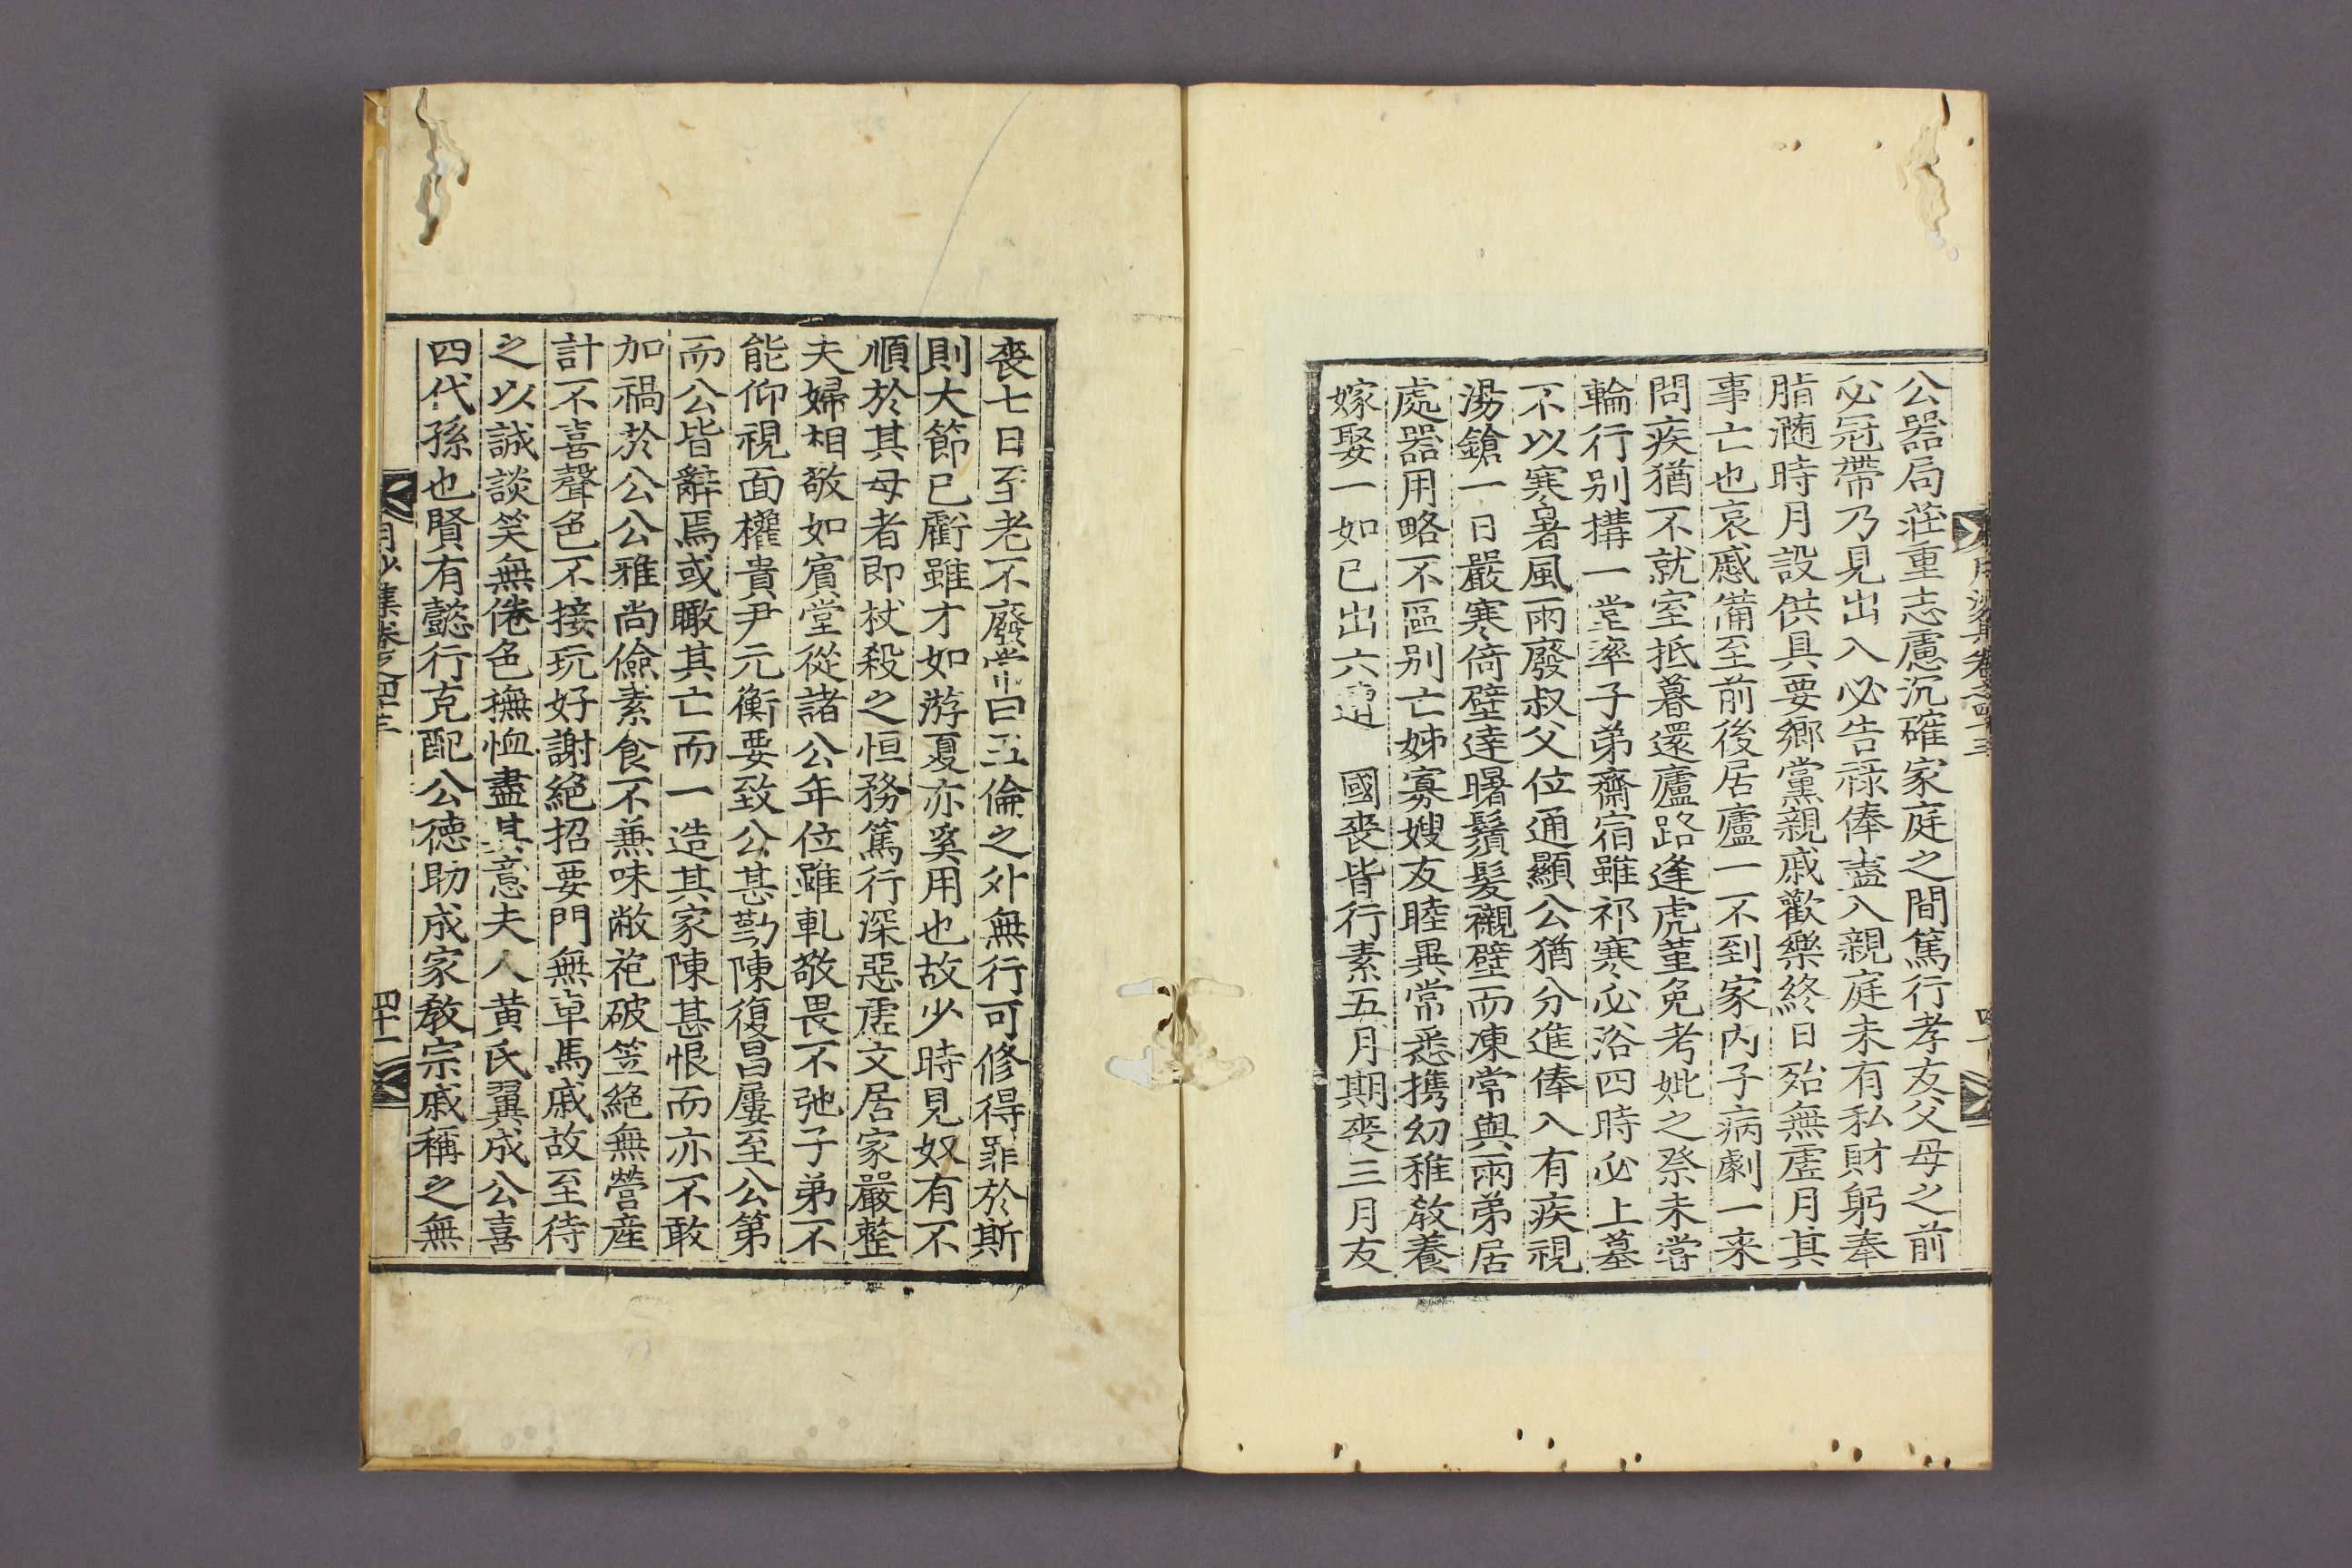 公器局莊重志慮沉確家庭之間篤行孝友父母之前
必冠帶乃見出入必告祿俸盡入親庭未有私財躬奉
脂瀡時月設供具要鄉黨親戚歡樂終日殆無虛月其
事亡也哀戚備至前後居廬一不到家內子病劇一來
問疾猶不就室抵暮還廬路逢虎董免考妣之祭未嘗
輪行别搆一堂率子弟齋宿雖祁寒必浴四時必上墓
不以寒暑風雨廢叔父位通顯公猶分進俸入有疾視
湯鎗一日嚴寒倚壁達曙鬚髮襯壁而凍常與兩弟居
處器用略不區别亡姊寡嫂友睦異常悉携幼稚敎養
嫁娶一如己出六遭　國喪皆行素五月期喪三月友
喪七日至老不廢嘗曰五倫之外無行可修得罪於斯
則大節已虧雖才如游夏亦奚用也故少時見奴有不
順於其母者即杖殺之恒務篤行深惡虛文居家嚴整
夫婦相敬如賓堂從諸公年位雖軋敬畏不弛子弟不
能仰視面權貴尹元衡要致公甚勤陳復昌屢至公第
而公皆辭焉或瞰其亡而一造其家陳甚恨而亦不敢
加禍於公公雅尚儉素食不兼味敝袍破笠絶無營産
計不喜聲色不接玩好謝絶招要門無車馬戚故至待
之以誠談笑無倦色撫恤盡其意夫人黃氏翼成公喜
四代孫也賢有懿行克配公德助成家教宗戚稱之無
月沙集卷之四十三
四十一